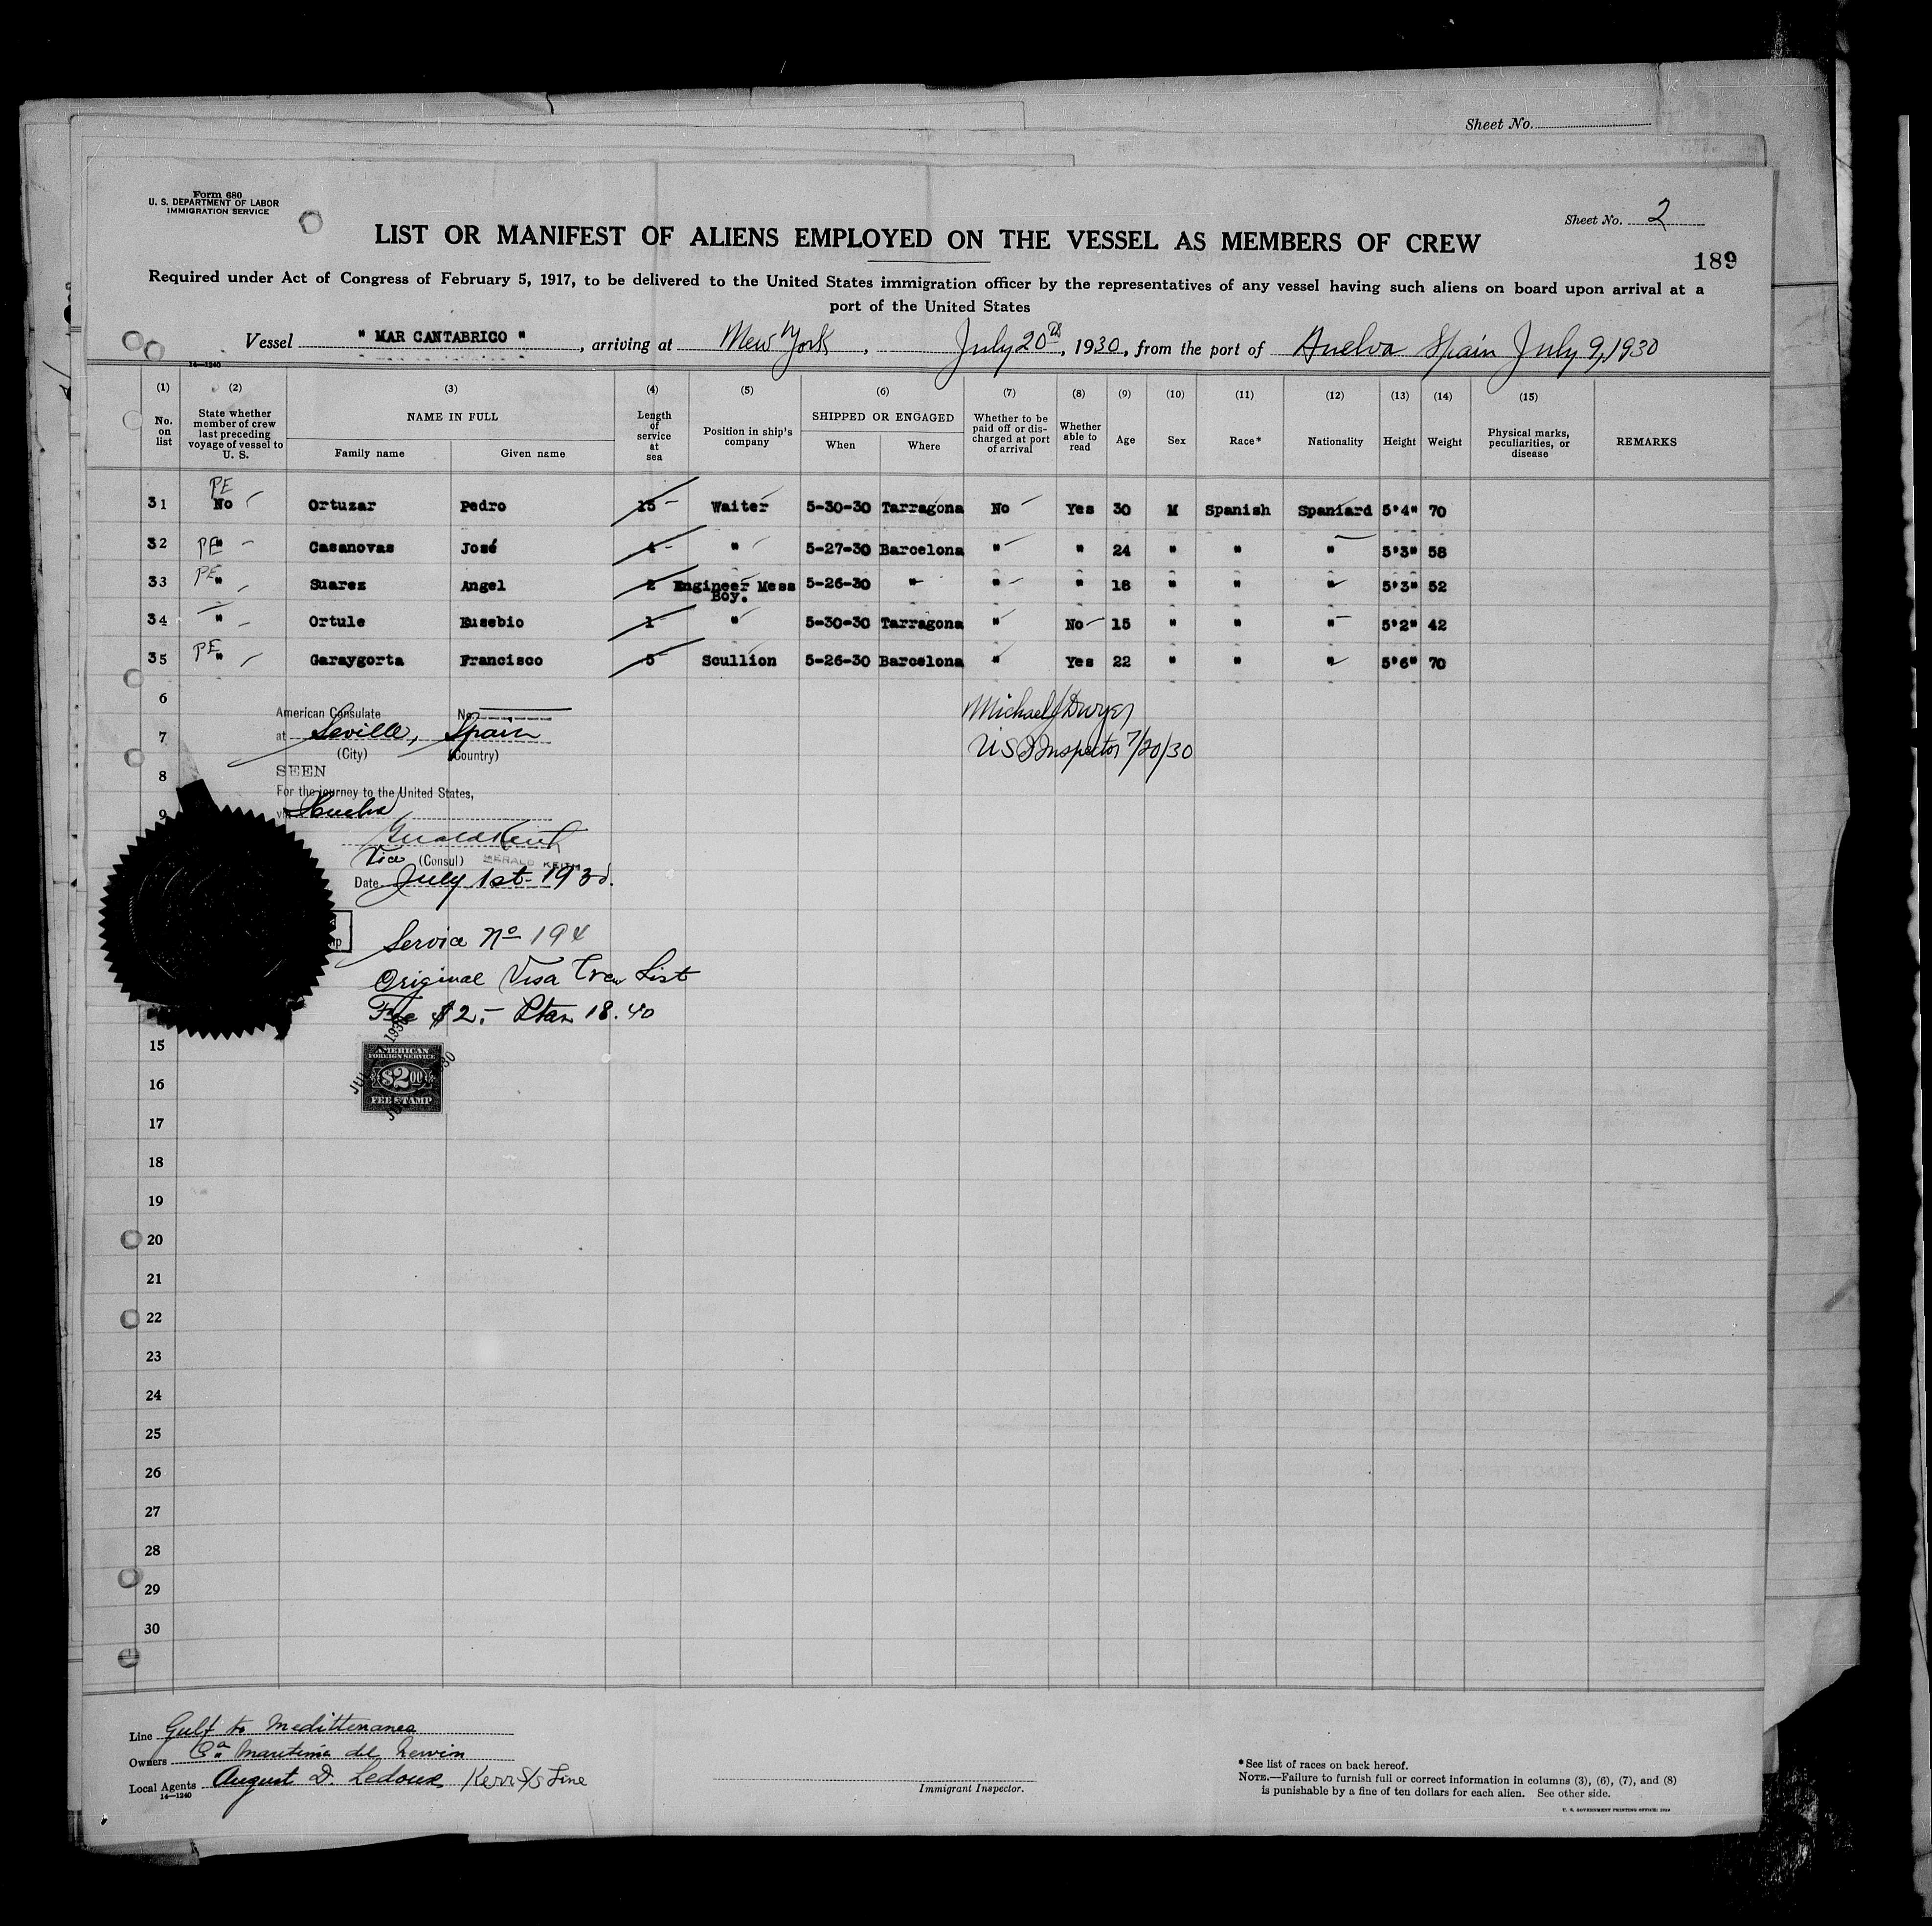 Sheet No.
Form 680
U. S. DEPARTMENT OF LABOR
IMMIGRATION SERVICE
Sheet No. 2
LIST OR MANIFEST OF ALIENS EMPLOYED ON THE VESSEL AS MEMBERS OF CREW
189
Required under Act of Congress of February 5, 1917, to be delivered to the United States immigration officer by the representatives of any vessel having such aliens on board upon arrival at a
port of the United States
Vessel " MAR CANTABRICO ", arriving at New York, July 20th, 1930, from the port of Huelva Spain July 9, 1930
14—1240
(1) (2) (3) (4) (5) (6) (7) (8) (9) (10) (11) (12) (13) (14) (15)
No. on list State whether member of crew last preceding voyage of vessel to U. S. NAME IN FULL Family name Given name Length of service at sea Position in ship's company SHIPPED OR ENGAGED When Where Whether to be paid off or discharged at port of arrival Whether able to read Age Sex Race* Nationality Height Weight Physical marks, peculiarities, or disease REMARKS
31 PE No Ortuzar Pedro 15 Waiter 5-30-30 Tarragona No Yes 30 M Spanish Spaniard 5'4" 70
32 PE " Casanovas José 4 " 5-27-30 Barcelona " " 24 " " " 5'3" 58
33 PE " Suarez Angel 2 Engineer Mess Boy. 5-26-30 " " " 18 " " " 5'3" 52
34 " Ortule Eusebio 1 " 5-30-30 Tarragona " No 15 " " " 5'2" 42
35 PE " Garaygorta Francisco 5 Scullion 5-26-30 Barcelona " Yes 22 " " " 5'6" 70
6
American Consulate No.
Michael J Dwyer
7
at Seville, Spain
US I Inspector 7/20/30
(City) (Country)
8
SEEN
For the journey to the United States,
9
via Huelva
Gerald Keith
Vice (Consul) GERALD KEITH
Date July 1st - 1930.
Service No 194
Original Visa Crew List
Fee $2.- Ptas 18.40
15
AMERICAN
FOREIGN SERVICE
$2.00
FEE STAMP
16
17
18
19
20
21
22
23
24
25
26
27
28
29
30
Line Gulf to Mediterranea
Owners Cia Maritima del Nervion
Local Agents August D. Ledoux Kerr S/S Line
14—1240
Immigrant Inspector.
* See list of races on back hereof.
NOTE.—Failure to furnish full or correct information in columns (3), (6), (7), and (8)
is punishable by a fine of ten dollars for each alien. See other side.